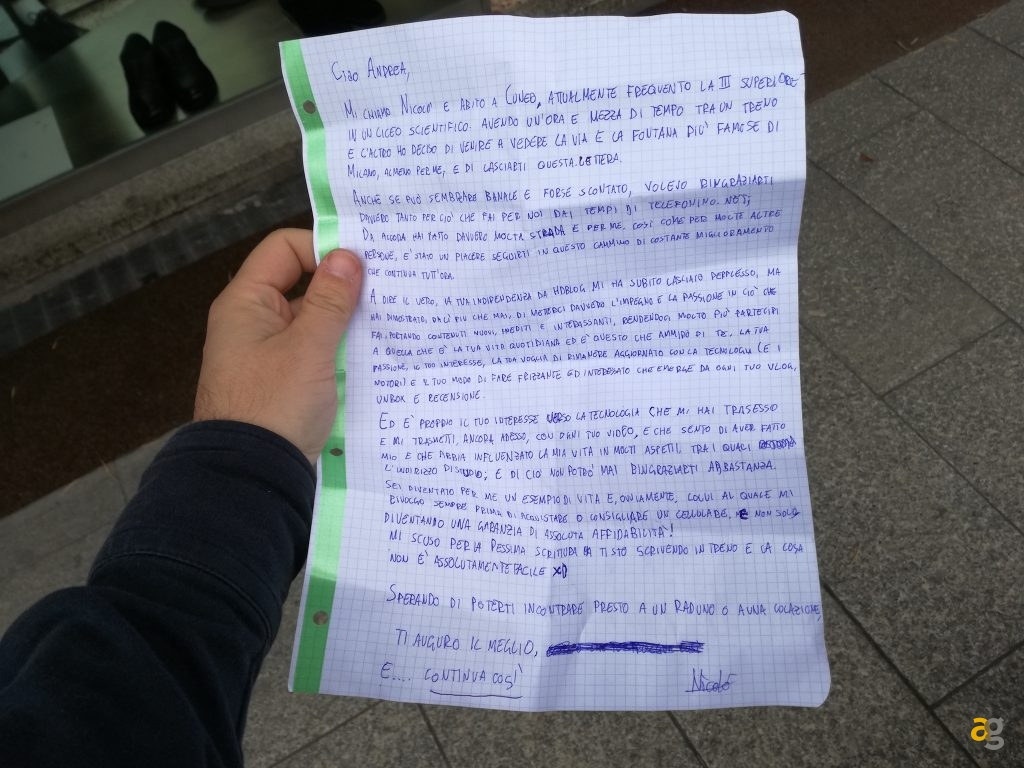 CIAO ANDREA,
MI CHIAMO NICOLÒ E ABITO A CUNEO, ATTUALMENTE FREQUENTO LA III SUPERIORE
IN UN LICEO SCIENTIFICO. AVENDO UN'ORA E MEZZA DI TEMPO TRA UN TRENO
E L'ALTRO HO DECISO DI VENIRE A VEDERE LA VIA E LA FONTANA PIÙ FAMOSE DI
MILANO, ALMENO PER ME, E DI LASCIARTI QUESTA LETTERA.
ANCHE SE PUÒ SEMBRARE BANALE E FORSE SCONTATO, VOLEVO RINGRAZIARTI
DAVVERO TANTO PER CIO' CHE FAI PER NOI DAI TEMPI DI TELEFONINO.NET;
DA ALLORA HAI FATTO DAVVERO MOLTA STRADA E PER ME, COSÌ COME PER MOLTE ALTRE
PERSONE, E' STATO UN PIACERE SEGUIRTI IN QUESTO CAMMINO DI COSTANTE MIGLIORAMENTO
CHE CONTINUA TUTT'ORA.
A DIRE IL VERO, LA TUA INDIPENDENZA DA HDBLOG MI HA SUBITO LASCIATO PERPLESSO, MA
HAI DIMOSTRATO, DA LÌ PIU CHE MAI, DI METTERCI DAVVERO L'IMPEGNO E LA PASSIONE IN CIO' CHE
FAI, PORTANDO CONTENUTI NUOVI, INEDITI E INTERASSANTI, RENDENDOCI MOLTO PIU' PARTECIPI
A QUELLA CHE E' LA TUA VITA QUOTIDIANA ED E' QUESTO CHE AMMIRO DI TE, LA TUA
PASSIONE, IL TUO INTERESSE, LA TUA VOGLIA DI RIMANERE AGGIORNATO CON LA TECNOLOGIA (E I
MOTORI) E IL TUO MODO DI FARE FRIZZANTE ED INTERESSATO CHE EMERGE DA OGNI TUO VLOG,
UNBOX E RECENSIONE.
ED E' PROPRIO IL TUO INTERESSE VERSO LA TECNOLOGIA CHE MI HAI TRASESSO
E MI TRASMETTI, ANCORA ADESSO, CON OGNI TUO VIDEO, E CHE SENTO DI AVER FATTO
MIO E CHE ABBIA INFLUENZATO LA MIA VITA IN MOLTI ASPETTI, TRA I QUALI
L'INDIRIZZO DI STUDIO; E DI CIÒ NON POTRO' MAI RINGRAZIARTI ABBASTANZA.
SEI DIVENTATO PER ME UN ESEMPIO DI VITA E, OVVIAMENTE, COLUI AL QUALE MI
RIVOLGO SEMPRE PRIMA DI ACQUISTARE O CONSIGLIARE UN CELLULARE, E NON SOLO
DIVENTANDO UNA GARANZIA DI ASSOLUTA AFFIDABILITA'!
MI SCUSO PER LA PESSIMA SCRITTURA MA TI STO SCRIVENDO IN TRENO E LA COSA
NON E' ASSOLUTAMENTE FACILE XD
SPERANDO DI POTERTI INCONTRARE PRESTO A UN RADUNO O A UNA COLAZIONE,
TI AUGURO IL MEGLIO,
E.... CONTINUA COSI'
Nicolò
ag